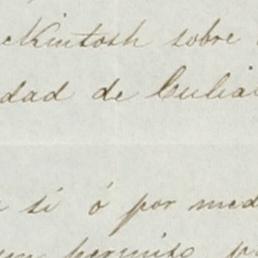 ckintosh sobre
dad de Culia
si ó por med
permiso p